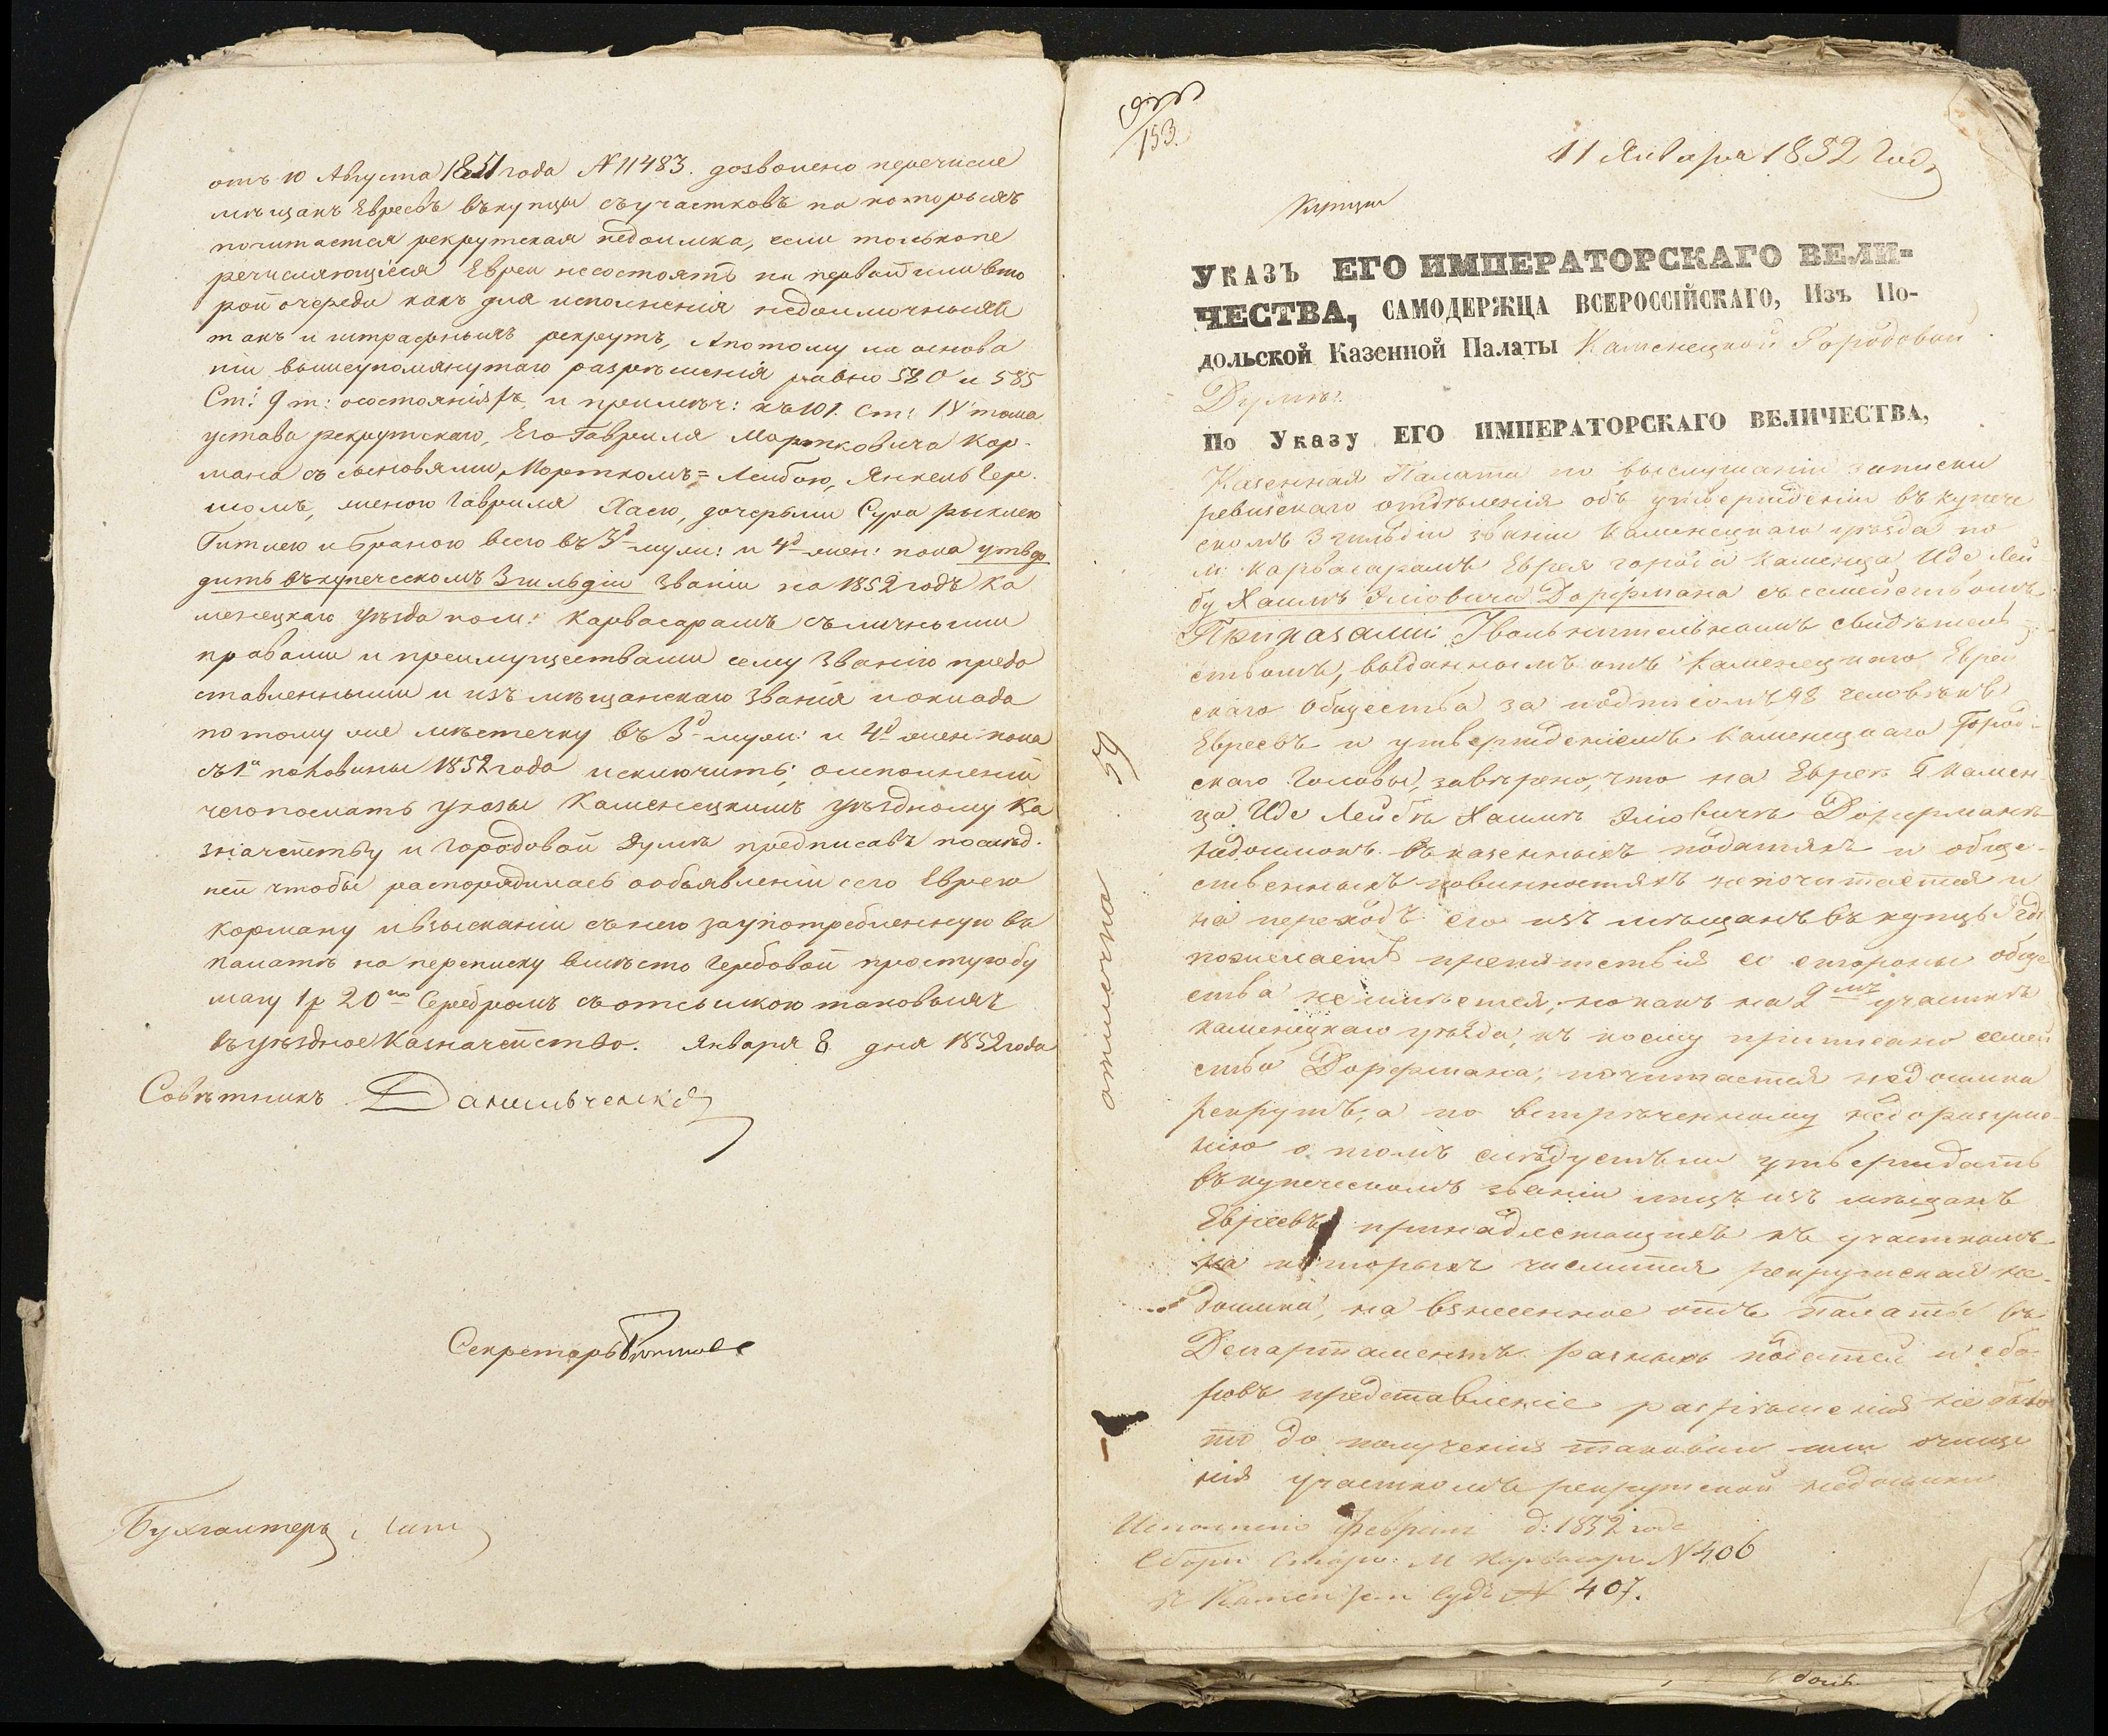 отъ 10 Августа 1851 года № 11483. дозволено перечисле
мѣщанъ Евреевъ въ купцы съ участковъ на которыхъ
почитается рекрутская недоимка, если только пе
речисляющіеся Евреи несостоятъ на первой или вто
рой очереди какъ для исполненія недоимочныхъ
такъ и штрафныхъ рекрутъ, Апотому на основа
ніи вышеупомянутаго разрѣшенія равно 580 и 585
Ст: 9 т: осостояніяхъ и примѣч: къ 101 Ст: IV тома
устава рекрутскаго, Его Гаврила Мортковича Кор-
мана съ сыновьями, Морткомъ=Лейбою, Янкель Гер-
шомъ, женою Гаврила Хаею, дочерьми Сура рыклею
Гитлею и Браною всего въ 3д муж: и 4д жен: пола утвер
дить въ купеческомъ 3 гильдіи званіи на 1852 годъ Ка
менецкаго уѣзда пом: Карвасарамъ съ личными
правами и преимуществами сему званію предо
ставленными и изъ мѣщанскаго званія и оклада
потому же мѣстечку въ 3д муж: и 4д жен пола
съ 1й половины 1852 года исключить; о исполненіи
чего послать указы Каменецкимъ уѣздному Ка
значейству и городовой Думѣ предписавъ послѣд-
ней чтобы распорядилась о объявленіи сего Еврею
Корману и взысканіи съ него за употребленную въ
палатѣ на переписку вмѣсто Гербовой простую бу
магу 1 р 20 ко Серебромъ съ отсылкою таковыхъ
въ уѣздное Казначейство. Января 8 дня 1852 года
Совѣтникъ Данильченко
Секретарь
Бухгалтеръ
153.
11 Января 1852 Года
Купцы
Указъ ЕГО ИМПЕРАТОРСКАГО ВЕЛИ-
ЧЕСТВА, САМОДЕРЖЦА ВСЕРОССІЙСКАГО, Изъ По-
дольской Казенной Палаты Каменецкой Городовой
Думѣ.
По Указу ЕГО ИМПЕРАТОРСКАГО ВЕЛИЧЕСТВА,
Казенная Палата по выслушаніи записки
ревизскаго отдѣленія объ утвержденіи въ купече
скомъ 3 гильдіи званіи Каменецкаго уѣзда по
м: Карвасарамъ Еврея города Каменца Иде Лей
бу Хаимъ Эліовича Дорфмана съ семействомъ
Приказали: Увольнительнымъ свидѣтель-
ствомъ, выданнымъ отъ Каменецкаго Еврей
скаго Общества за подписомъ 48 человѣкъ
Евреевъ и утвержденіемъ Каменецкаго Город-
скаго Головы, завѣрено, что на Евреѣ Г. Камен
ца Иде Лейбѣ Хаимѣ Эліовичѣ Дорфманѣ
недоимокъ въ казенныхъ податяхъ и обще-
ственныхъ повинностяхъ непочитается и
на переходъ его изъ мѣщанъ въ купцы гдѣ
пожелаетъ препятствія со стороны обще
ства неимѣется; но какъ на 9мъ участкѣ
каменецкаго уѣзда, къ коему приписано семей
ство Дорфмана, почитается недоимка
рекрутъ, а по встрѣченному недоразумѣ-
нію о томъ слѣдуетъ ли утверждать
въ купеческомъ званіи лицъ изъ мѣщанъ
Евреевъ принадлежащихъ къ участкамъ
на которыхъ числится рекрутская не-
доимка, на взнесенное отъ палаты въ
Департаментъ разныхъ податей и сбо-
ровъ представленіе разрѣшенія не было
то до полученія таковаго или очище
нія участкомъ рекрутской недоимки
Исполнено Февраля д: 1852 года
Сборн Старо: М Карвасаръ № 406
и Камен Зем Суду № 407.
отмѣчено 59